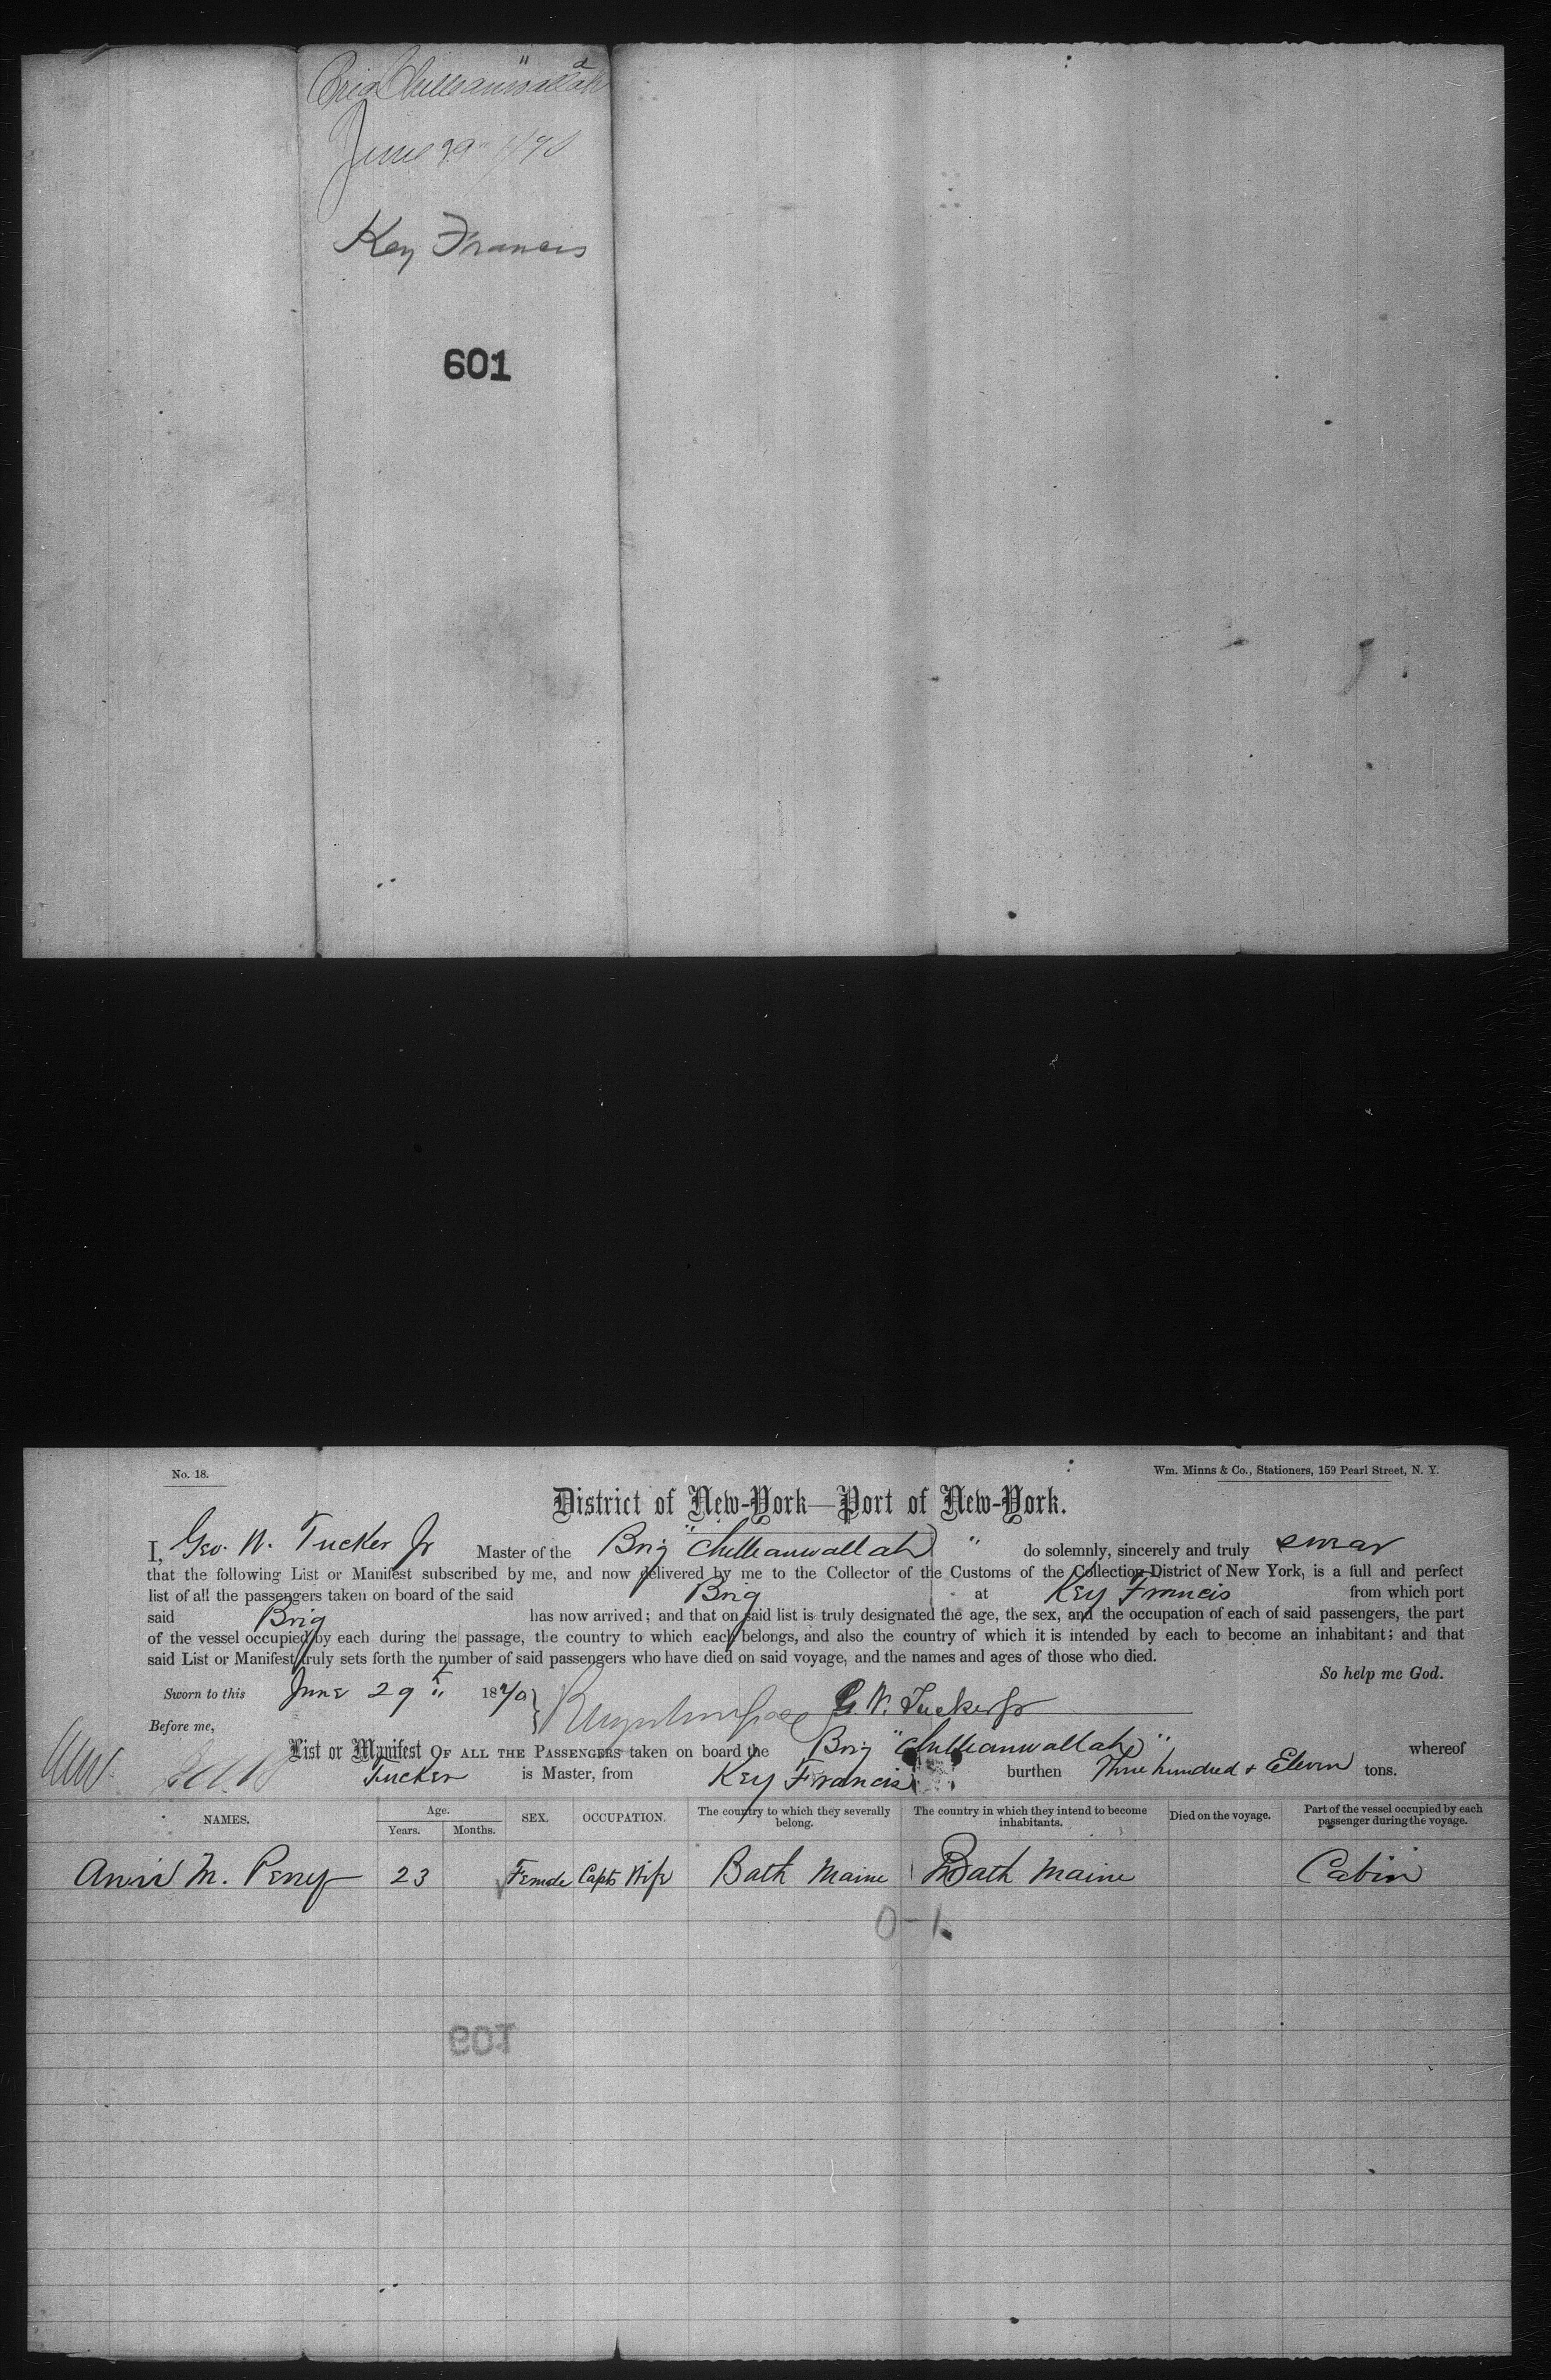 Brig "Chillianwallah"
June 29" 1870
Key Francis
601
No. 18.
Wm. Minns & Co., Stationers, 159 Pearl Street, N. Y.
District of New-York—Port of New-York.
I, Geo. W. Tucker Jr Master of the Brig "Chillianwallah" do solemnly, sincerely and truly swear
that the following List or Manifest subscribed by me, and now delivered by me to the Collector of the Customs of the Collection District of New York, is a full and perfect
list of all the passengers taken on board of the said Brig at Key Francis from which port
said Brig has now arrived; and that on said list is truly designated the age, the sex, and the occupation of each of said passengers, the part
of the vessel occupied by each during the passage, the country to which each belongs, and also the country of which it is intended by each to become an inhabitant; and that
said List or Manifest truly sets forth the number of said passengers who have died on said voyage, and the names and ages of those who died.
So help me God.
Sworn to this June 29 th 1870 G. W. Tucker Jr
Before me,
List or Manifest OF ALL THE PASSENGERS taken on board the Brig "Chillianwallah" whereof
Tucker is Master, from Key Francis burthen Three hundred & Eleven tons.
NAMES. Age. Years. Months. SEX. OCCUPATION. The country to which they severally belong. The country in which they intend to become inhabitants. Died on the voyage. Part of the vessel occupied by each passenger during the voyage.
M. Perry 23 Female Capts Wife Bath Maine Bath Maine Cabin
0-1
601